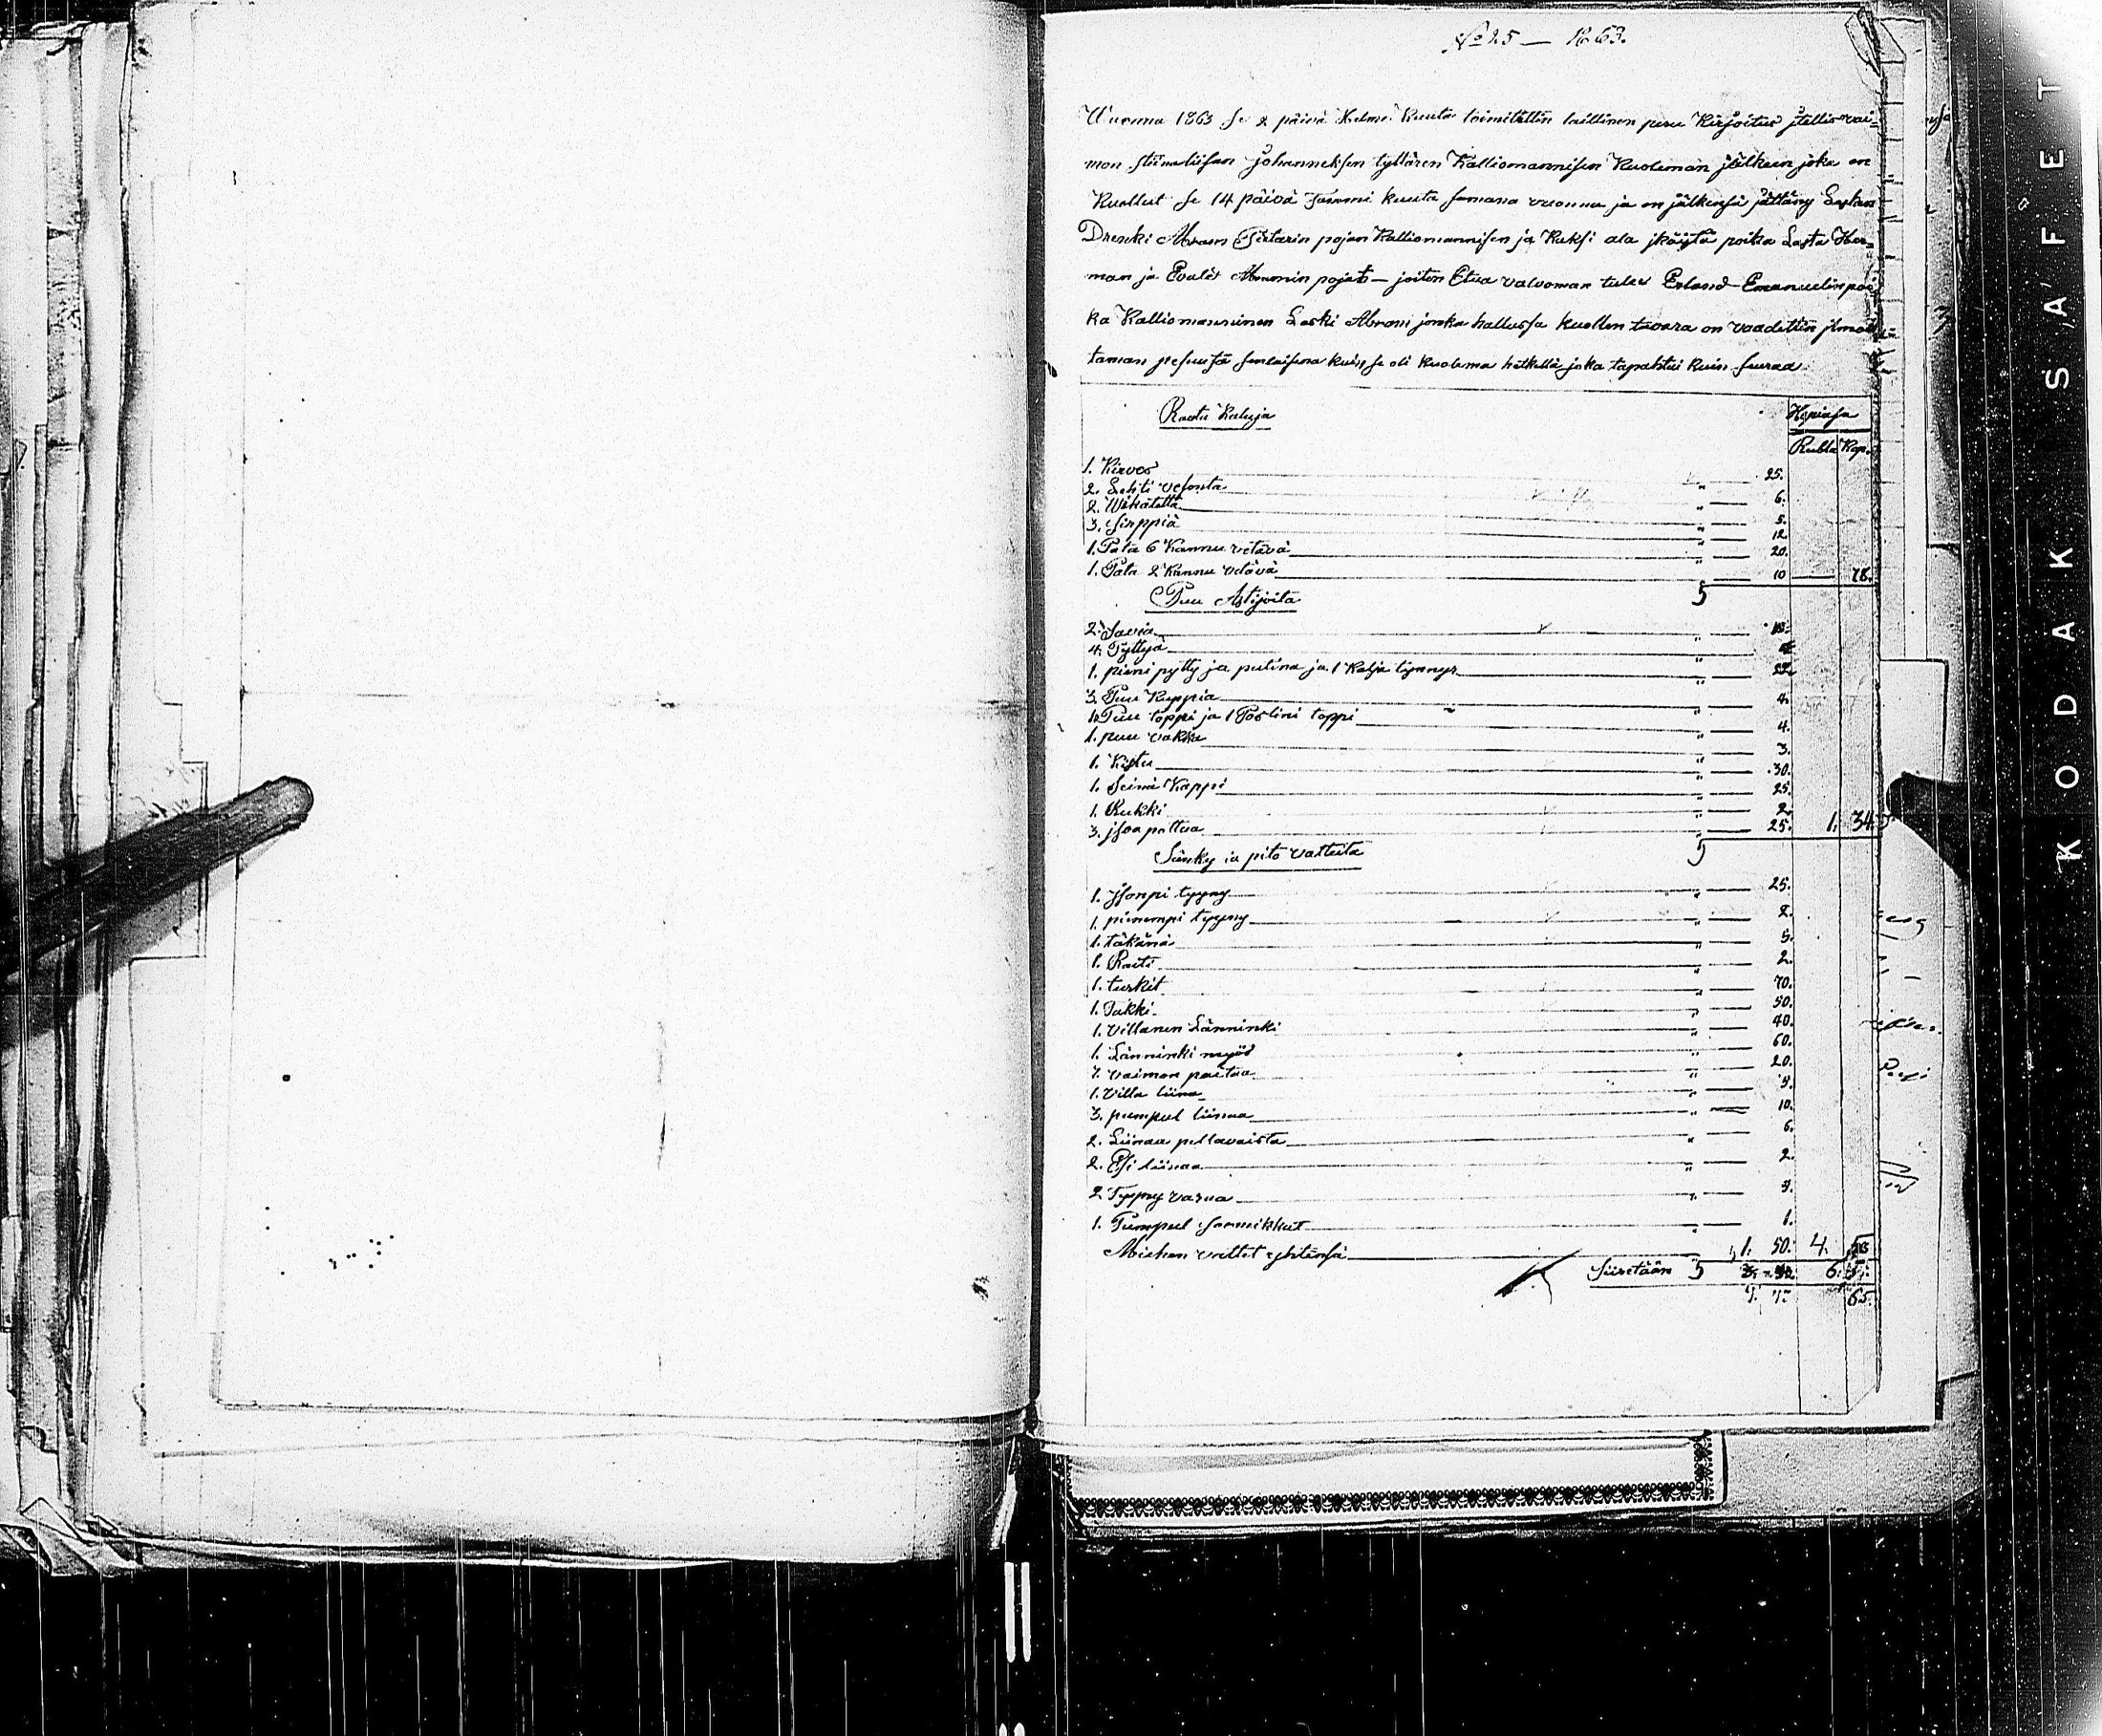 No 25 — 1863.
Wuonna 1863 se 2 päivä Helmi Kuuta toimitettin laillinen pesu Kirjoitus jtellis vai=
mon stiinaliisan Johanneksen tyttären Kalliomannisen Kuoleman jälkeen joka on
Kuollut se 14 päivä Tammi kuuta samana vuonna ja on jälkensä jättäny Lesken
Drenki Abram Pietarin pojan Kalliomannisen ja Kaksi ala jkäystä poika Lasta Her=
man ja Evalit Abramin pojat — joiton Etua valvoman tulee Erland Emanuelin poi
ka Kalliomanninen Leski Abram jonka hallussa kuollen tavara on vaadettin jlmoit=
taman pesuusa senlaisena kuin se oli kuolema hetkellä joka tapahtui kuin seuraa
Rauta Kaluja
Hopiasa
Rubla Kop.
1. Kirves " — 25.
2. Lehti vesuria " — 6.
2. Wikatetta " — 5.
3. Sirppiä " — 12
1. Pata 6 Kannu vetävä " — 20.
1. Pata 2 Kannu vetävä — 10 — 78.
Puu Astijoita
2. Saavia "
4. Pyttyä "
1. pieni pytty ja putina ja 1 Kalja tynnyr " — 22
3. Puu Kuppia " — 4.
Puu toppi ja 1 Posliini toppi " — 4.
1. puu vakka " — 3.
1. Kistu " — 30.
1. Seinä Kappi " — 25.
1. Rukki " — 2
3. jsoa pattua — 25. 1. 34.
Sänky ja pito vatteita
1. jsompi tyyny " — 25.
1. pienempi tyyny " — 2.
1. täkänä " — 5.
1. Raiti " — 2.
1. turkit " — 70.
1. Takki " — 50.
1. villanen Länninki " — 40.
1. Länninki myös " — 60.
7. vaimon paitaa " — 20.
1. villa liina "
3. pumpul liinaa " — 10.
2. Liinaa pellavaista " — 6.
2. Esi liinaa " — 2.
2 Tyyny varua "
1. Pumpul sormikkut " — 1.
Miehen vattet yhtensä 1. 50. 4.
Siiretään 6.
65.
KODAK SAFET